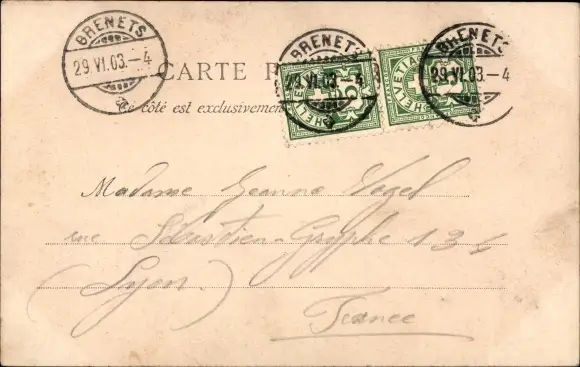 BRENETS
29.VI.03.–4
BRENETS
29.VI.03.–4
BRENETS
29.VI.03.–4
HELVETIA
HELVETIA
CARTE
Ce côté est exclusivement
Madame Jeanne Vogel
rue Sébastien-Gryphe
(Lyon.)
France